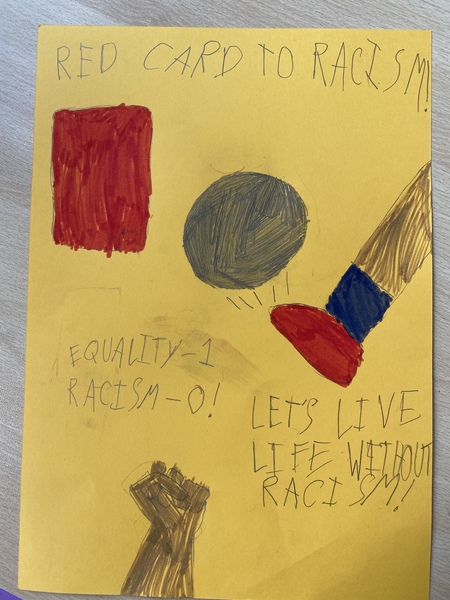 RED CARD TO RACISM!
EQUALITY-1
RACISM-0!
LET'S LIVE
LIFE WITHOUT
RACISM!!